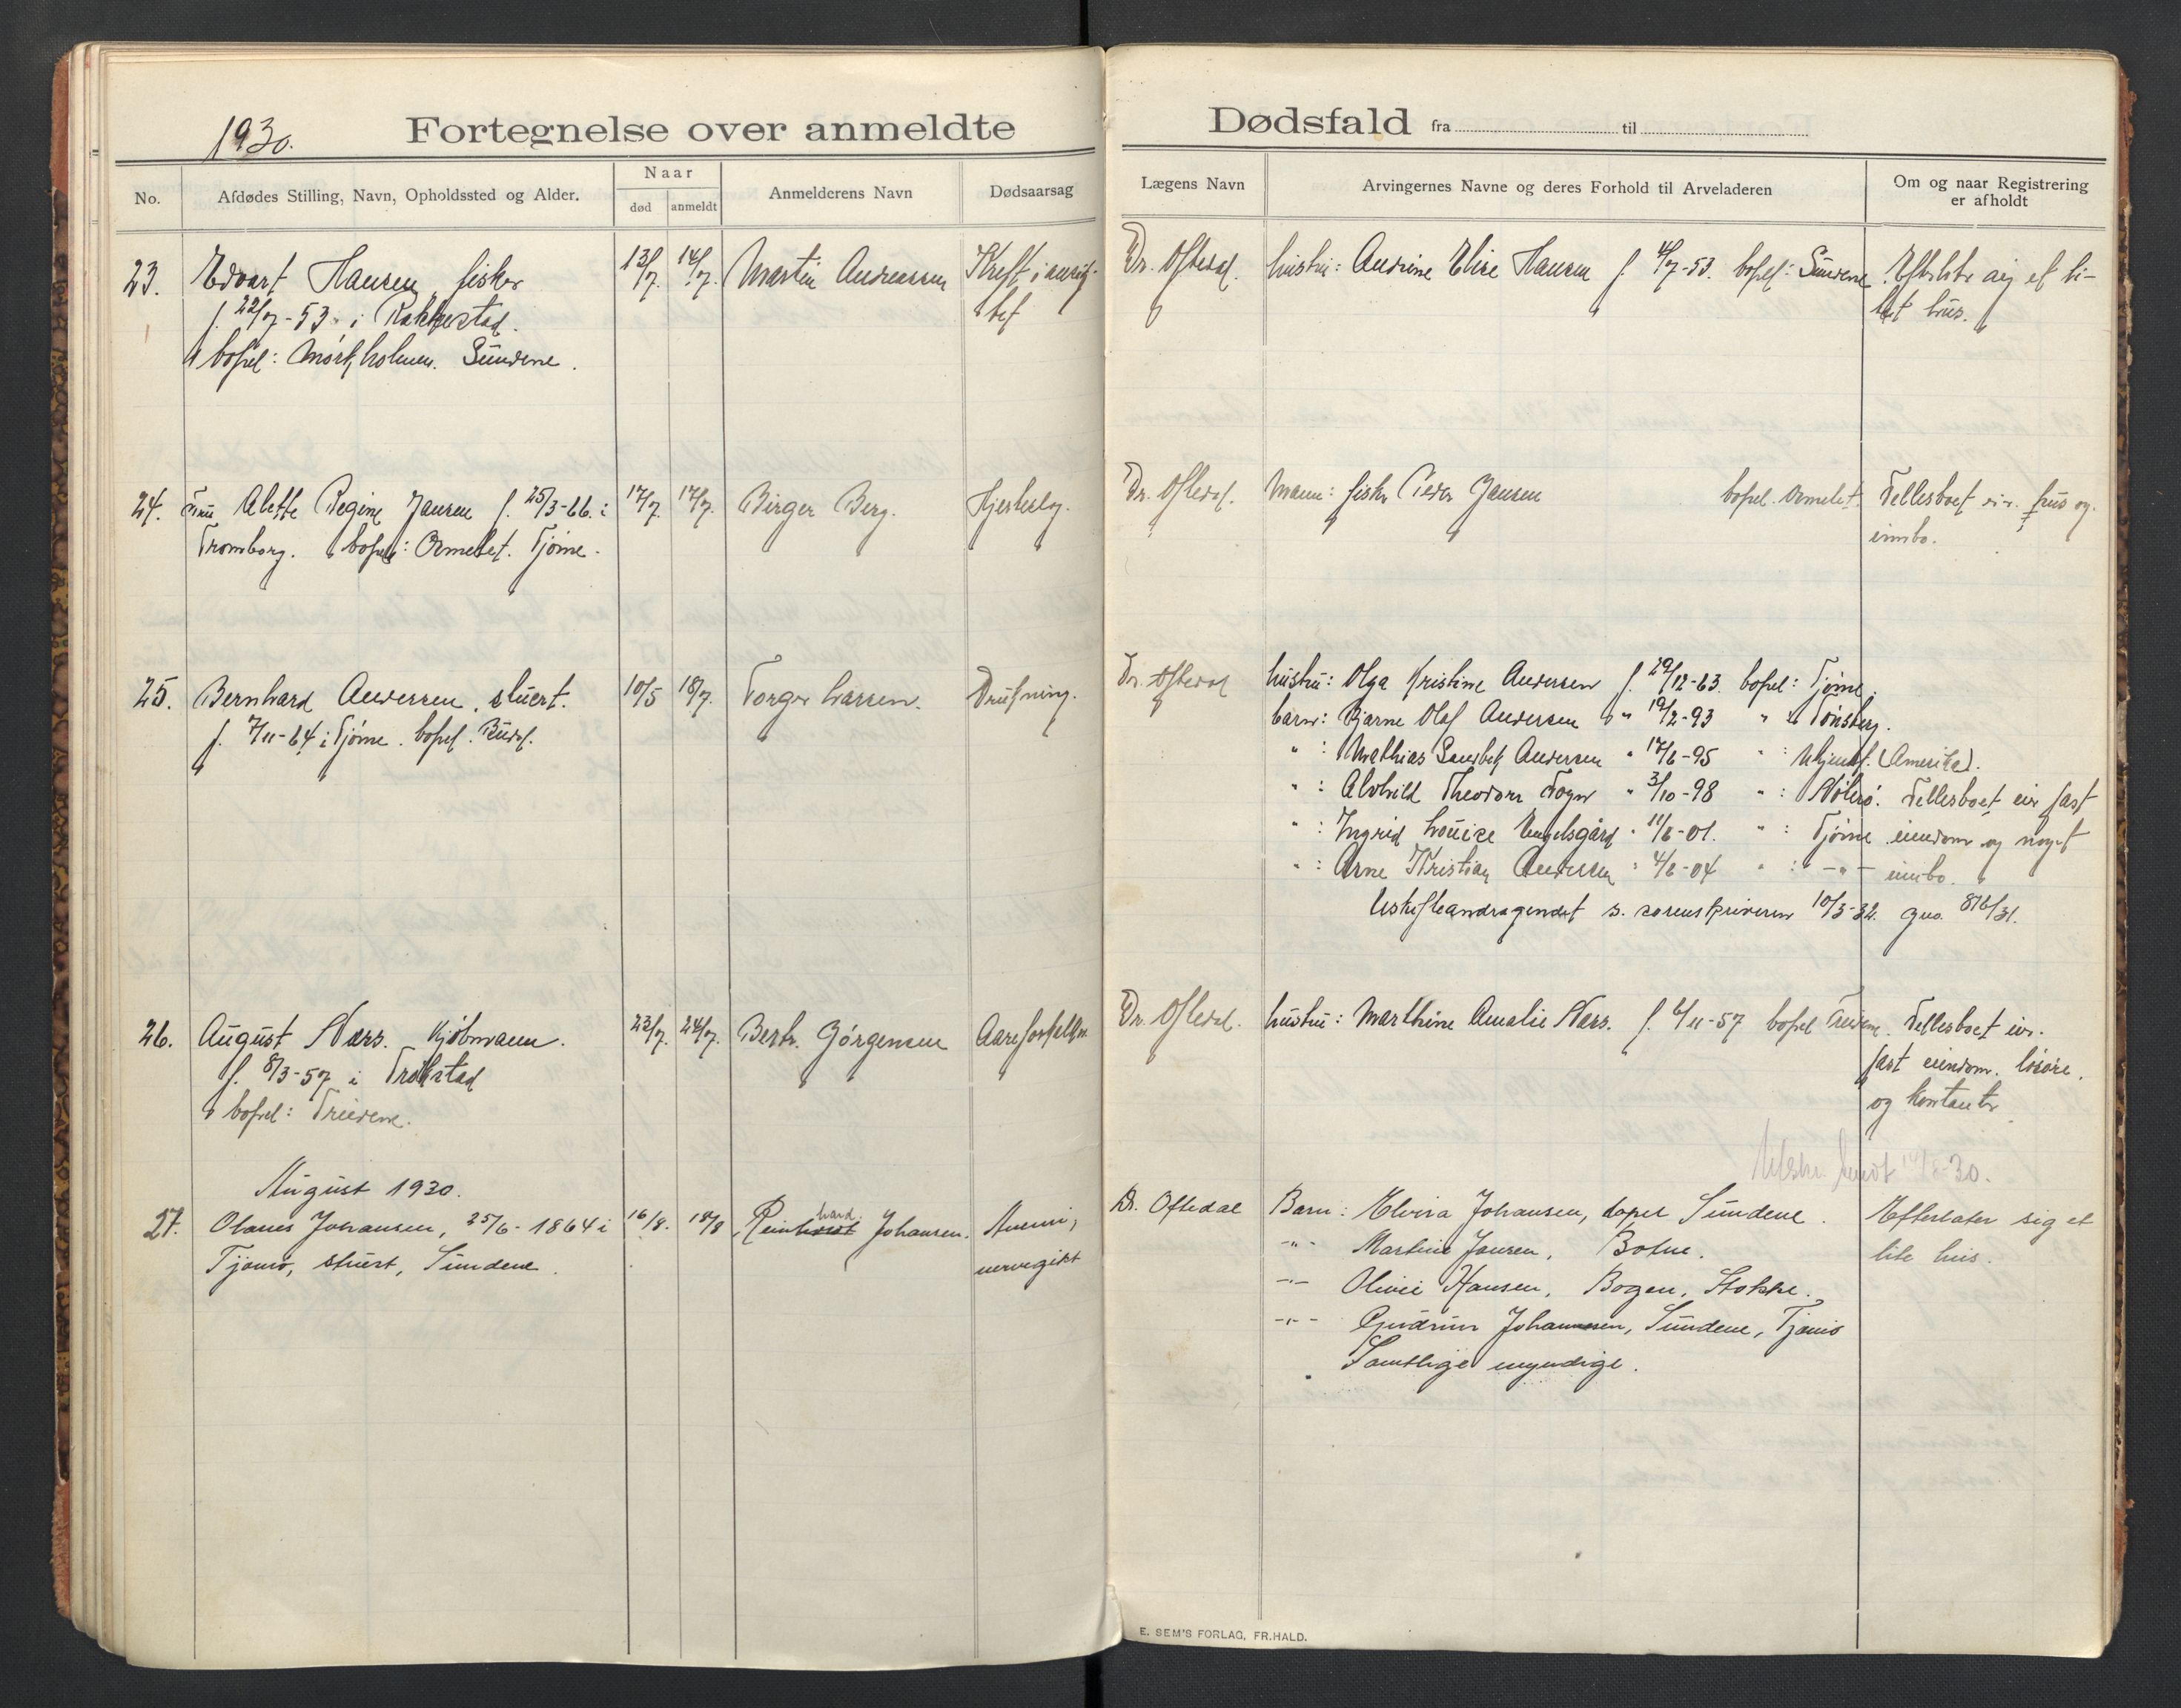 1930.
Fortegnelse over anmeldte Dødsfald fra til
No.
Afdødes Stilling, Navn, Opholdssted og Alder.
Naar
død
anmeldt
Anmelderens Navn
Dødsaarsag
Lægens Navn
Arvingernes Navne og deres Forhold til Arveladeren
Om og naar Registrering
er afholdt
23.
Edvart Hansen, fisker
f. 22/7-53 i Rakkestad.
bopel: Mørkholmen. Sundene.
13/7.
14/7.
Martin Andreassen
Kreft i
Dr. Oftedal.
hustru: Andrine Elise Hansen f. 4/7-53. bopel: Sundene.
Efterlater sig et li-
let hus.
24.
Fru Alette Regine Jansen f. 25/3-66. i
Tromborg. bopel: Ormelet. Tjøme.
17/7.
17/7.
Birger Berg.
Hjerteslag.
Dr. Oftedal.
Mann: fisker Peder Jansen bopel. Ormelet.
Fellesboet eier hus og
innbo.
25.
Bernhard Andersen, stuert.
f. 7/11-64 i Tjøme. bopel. Budal.
10/5
18/7.
Torger Larsen.
Drukning.
Dr. Oftedal
hustru: Olga Kristine Andersen f. 29/12-63. bopel: Tjøme.
barn: Bjarne Olaf Andersen " 19/2-93 " : Tønsberg.
" : Mathias Sandbek Andersen " 17/6-95 " : Ukjendt. (Amerika).
" : Alvhild Theodora Fogn " 3/10-98 " : Nøterø.
" : Ingrid Louise Engelsgård " 11/6-01. " : Tjøme
" : Arne Kristian Andersen " 4/6-04 " : -"-
Fellesboet eier fast
eiendom og noget
innbo.
Uskifteandragendet s. sorenskriveren 10/3-32. gno. 876/31.
26.
August Næss. Kjøbmann.
f. 8/3-57 i Trøkstad
bopel: Treidene.
23/7.
24/7.
Berth. Jørgensen
Aareforkalkn.
Dr. Oftedal.
hustru: Marthine Amalie Næss. f. 6/11-57 bopel Treidene.
Fellesboet eier.
fast eiendom. løsøre.
og kontanter
Uskr. sendt 14/8-30.
August 1930.
27.
Olaves Johansen, 25/6-1864 i
Tjømø, stuert, Sundene.
16/8.
18/8
hard
Reinholdt Johansen.
Anemi,
nervegikt
Dr. Oftedal
Barn: Elvira Johansen, bopel Sundene.
-"- Martine Jansen, Botne.
-"- Olivie Hansen, Bogen, Stokke.
-"- Gudrun Johannesen, Sundene, Tjømø
Samtlige myndige.
Efterlater sig et
lite hus.
E. SEM'S FORLAG, FR.HALD.